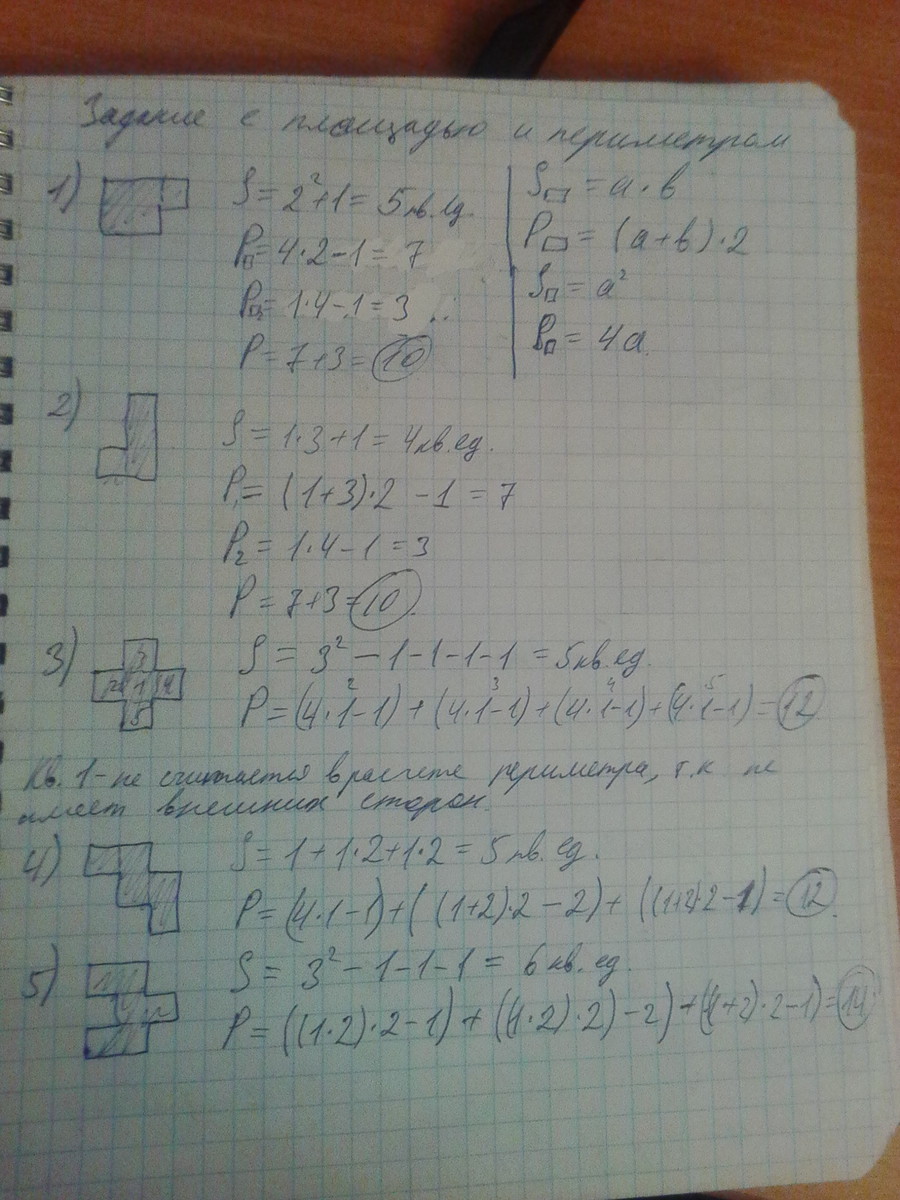 Задание с площадью и периметром
1) S = 2² + 1 = 5 кв. ед.
P□ = 4·2 - 1 = 7
P□₂ = 1·4 - 1 = 3
P = 7 + 3 = 10
S▭ = a · b
P▭ = (a + b) · 2
S□ = a²
P□ = 4a.
2) S = 1·3 + 1 = 4 кв. ед.
P₁ = (1 + 3)·2 - 1 = 7
P₂ = 1·4 - 1 = 3
P = 7 + 3 = 10.
3) 3 2 1 4 5 S = 3² - 1 - 1 - 1 - 1 = 5 кв. ед.
2 3 4 5
P = (4·1 - 1) + (4·1 - 1) + (4·1 - 1) + (4·1 - 1) = 12
Кв. 1 - не считается в расчете периметра, т.к не
имеет внешних сторон
4) S = 1 + 1·2 + 1·2 = 5 кв. ед.
P = (4·1 - 1) + ((1+2)·2 - 2) + ((1+2)·2 - 1) = 12.
5) S = 3² - 1 - 1 - 1 = 6 кв. ед.
P = ((1·2)·2 - 1) + ((1·2)·2) - 2) + ((1+2)·2 - 1) = 14